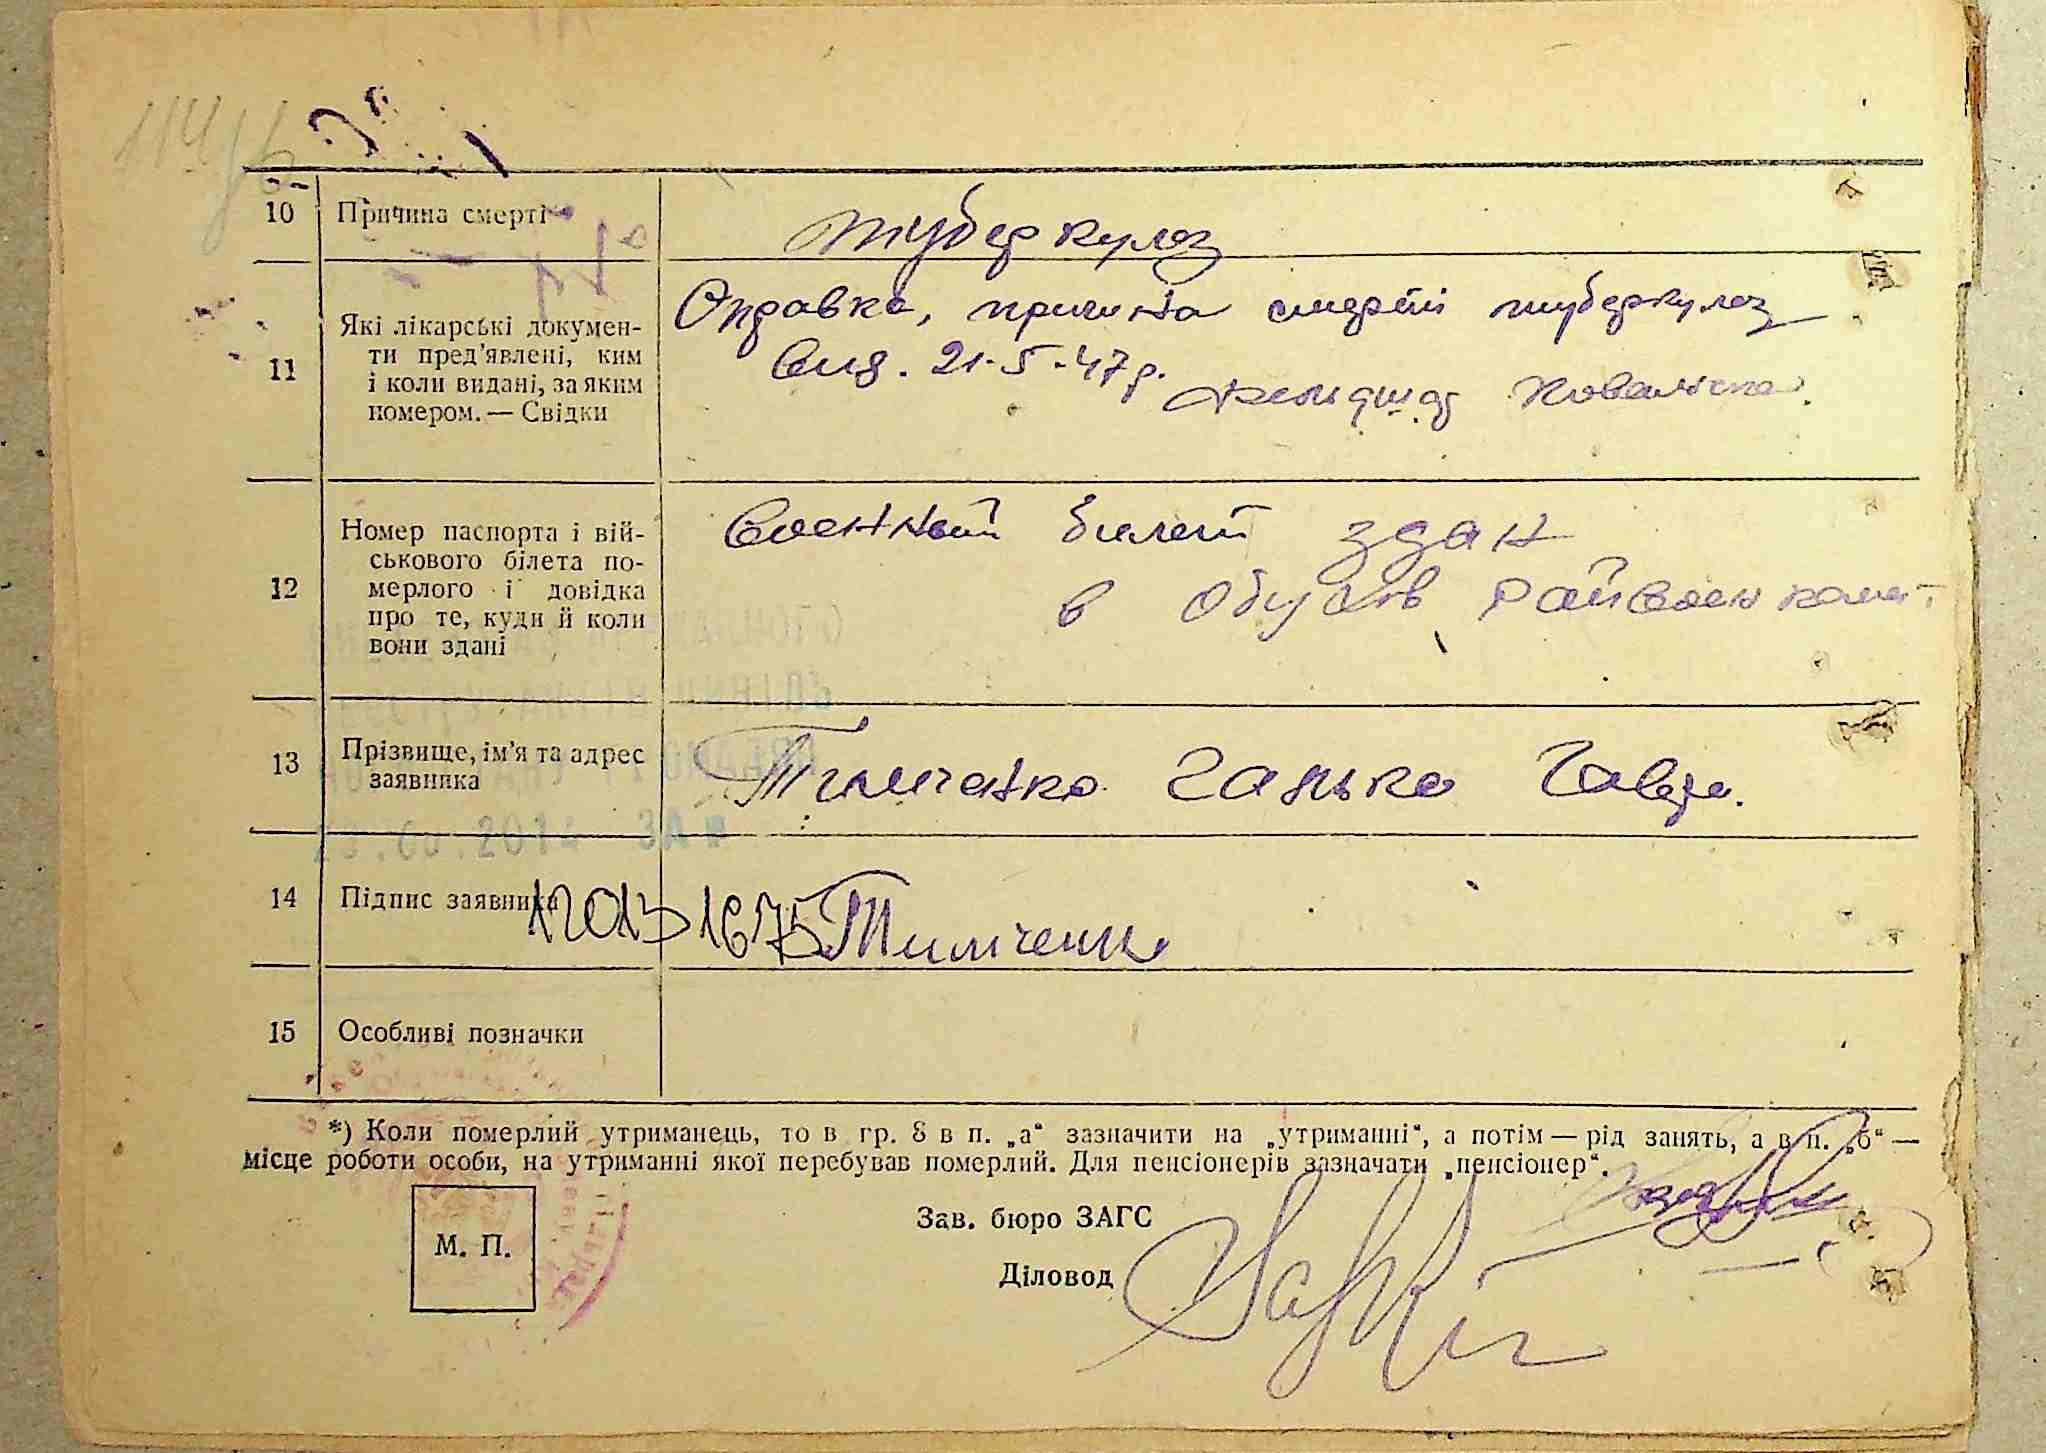 10 Причина смерті туберкулоз
11 Які лікарські докумен-
ти пред'явлені, ким
і коли видані, за яким
номером. — Свідки
Справка, причина смерті туберкулоз
вид. 21-5-47р.
12 Номер паспорта і вій-
ськового білета по-
мерлого і довідка
про те, куди й коли
вони здані
Военный билет здан
в Обухов Райвоенкомат
13 Прізвище, ім'я та адрес
заявника
Тимченко Ганька
14 Підпис заявника Тимченко
15 Особливі позначки
*) Коли померлий утриманець, то в гр. 8 в п. „а“ зазначити на „утриманні“, а потім — рід занять, а в п. „б“ —
місце роботи особи, на утриманні якої перебував померлий. Для пенсіонерів зазначати „пенсіонер“.
М. П.
Зав. бюро ЗАГС
Діловод